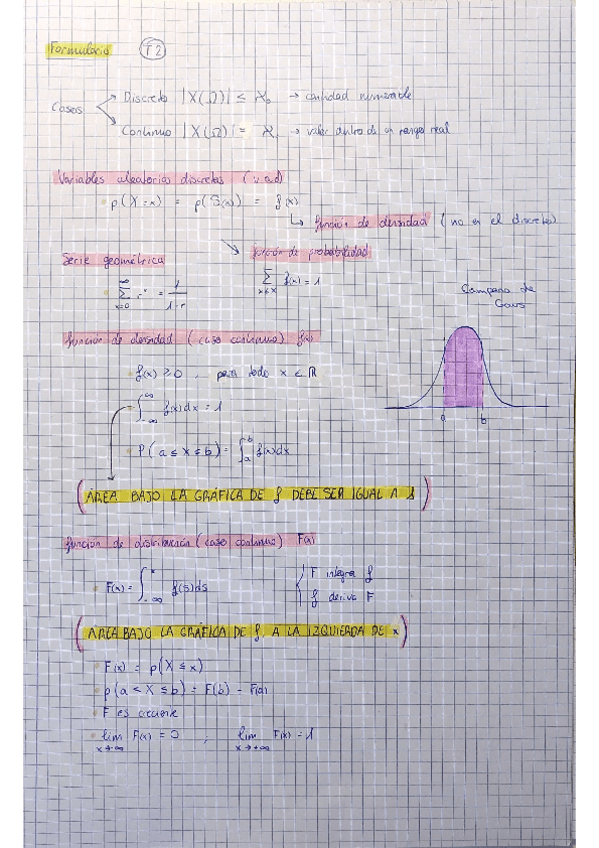 Formulario T2
Casos
→ Discreto |X(Ω)| ≤ ℵ₀ → cantidad numerable
→ Continuo |X(Ω)| = ℵ₁ → valor dentro de un rango real
Variables aleatorias discretas (v.a.d)
p(X=x) = p(S(x)) = f(x)
↳ función de densidad (no en el discreto)
Serie geométrica
↘ función de probabilidad
∑_{x=0}^{∞} r^x = 1/(1-r)
∑_{x∈X} f(x) = 1
Campana de
Gaus
función de densidad (caso continuo) f(x)
f(x) ≥ 0 , para todo x ∈ ℝ
∫_{-∞}^{+∞} f(x)dx = 1
a b
P(a ≤ X ≤ b) = ∫_a^b f(x)dx
(ÁREA BAJO LA GRÁFICA DE f DEBE SER IGUAL A 1)
función de distribución (caso continuo) F(x)
F(x) = ∫_{-∞}^{x} f(s)ds
F integra f
f deriva F
(ÁREA BAJO LA GRÁFICA DE f, A LA IZQUIERDA DE x)
F(x) = p(X ≤ x)
p(a < X ≤ b) = F(b) - F(a)
F es creciente
lim_{x→-∞} F(x) = 0 ; lim_{x→+∞} F(x) = 1